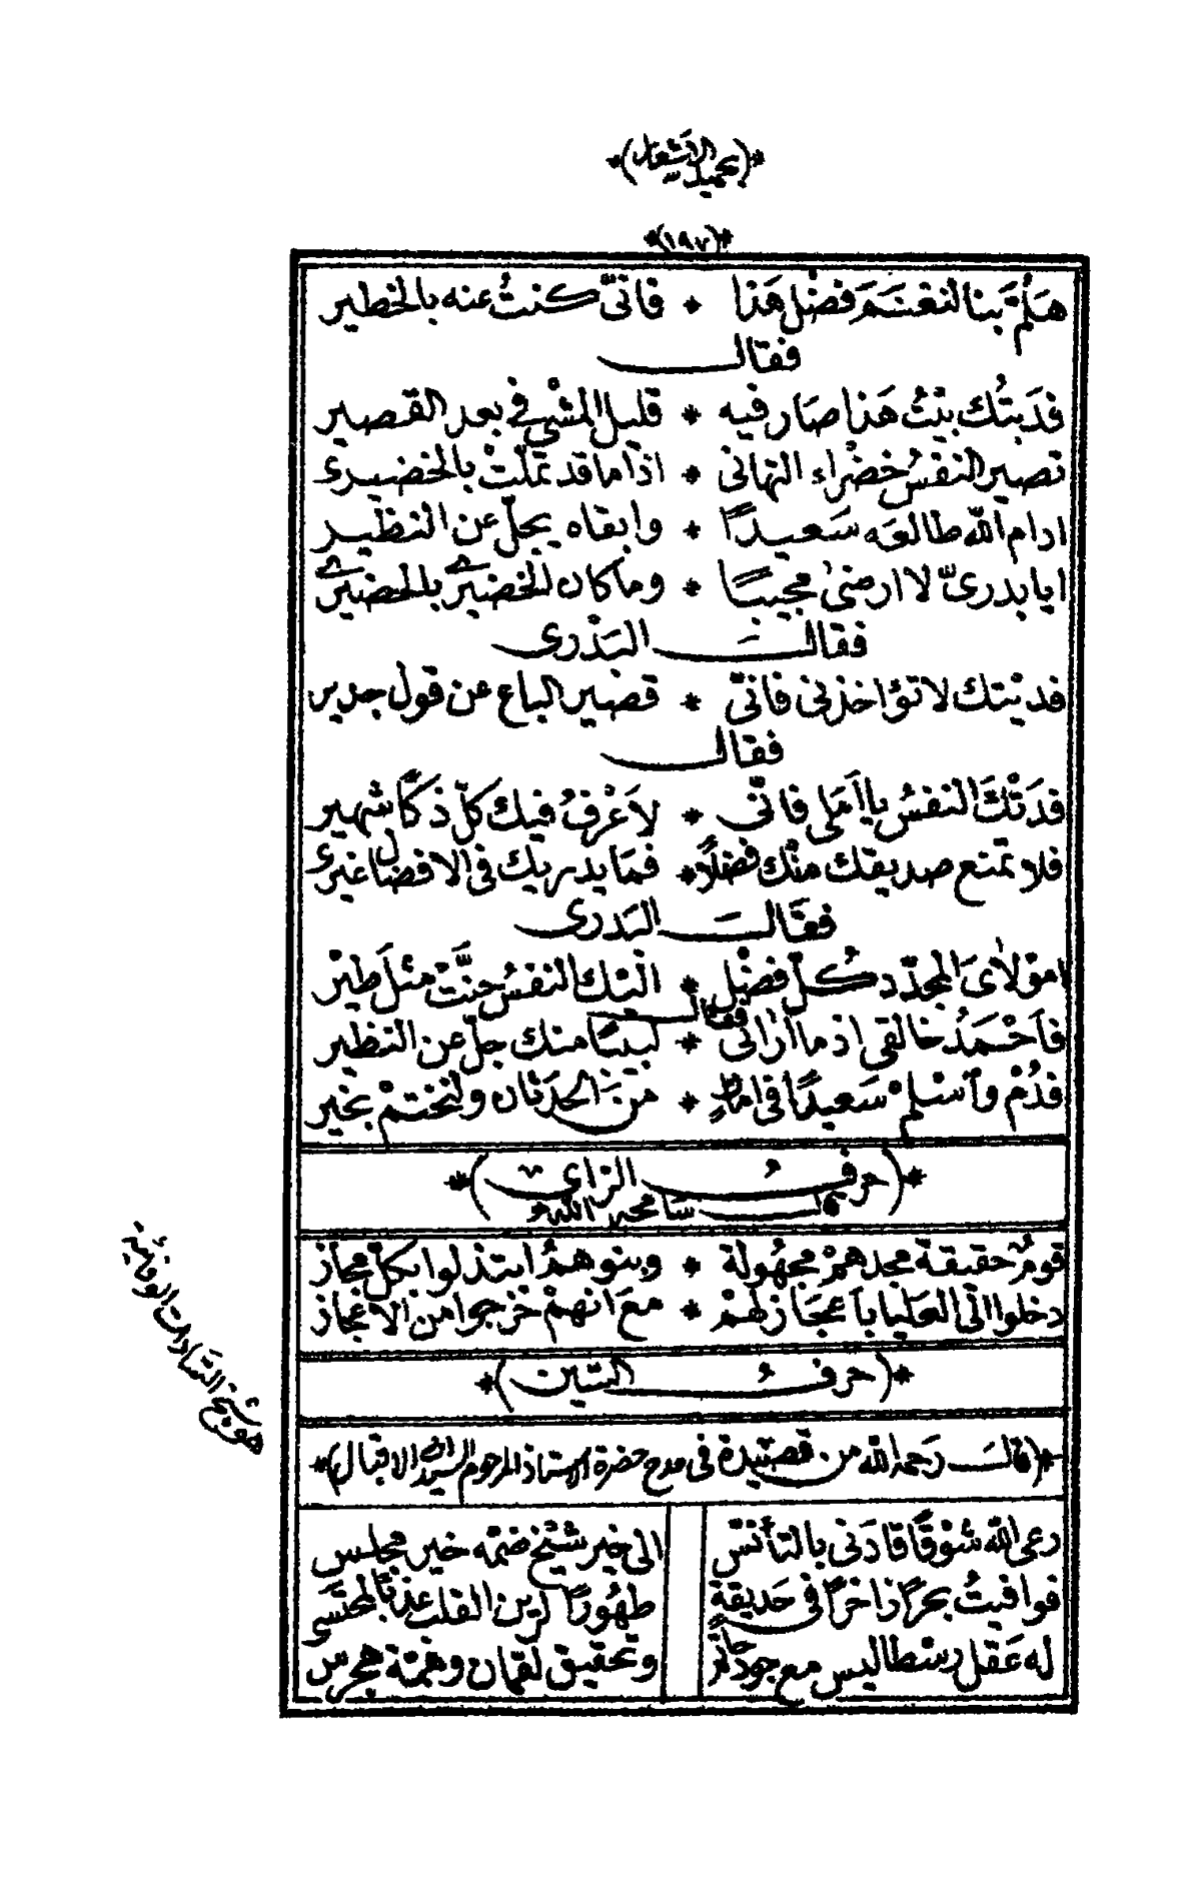 *(بجميل الاشعار)*
*(١٩٧)*
هَلُمَّ بَنا لنغتنمَ فضْل هَذا * فانىّ كنتُ عنه بالخطير
فقال
فدَيتُك بيْتُ هَذا صَار فيه * قليل المشْىِ فى بعد القصير
تصير النفسُ خضْراء التهانى * اذا ما قد تملّتْ بالخضيرى
ادام اللّه طالعَه سَعيدًا * وابقاه يجلّ عن النظير
ايا بدرىّ لا ارضىٰ مجيبًا * وما كان الخضيرى بالخضيرى
فقالَ البَدْرى
فديْتك لا تؤاخذنى فانىّ * قصْير الباع عن قول جدير
فقال
فدَتْكَ النفسُ يا اَمَلى فانّى * لاَعْرِفُ فيك كلّ ذكًا شهير
فلا تمنع صديقك منْك فضْلًا * فمَا يدريك فى الافضال غيرى
فقَالَ البَدرى
امَوْلاىَ المجدّد كُلّ فضْلٍ * اليْك النفسُ حنَّتْ مثلَ طيْر
فقال
فاَحْمَدُ خالقى اذ ما اَرَانى * لبيبًا منك جلّ عن النظير
فدُمْ وَاسْلمْ سَعيدًا فى امانٍ * منَ الحدثان ولنختمْ بخير
*(حرفُ الزاى)*
قالَ سامحه اللّه
قومٌ حقيقة مجدهمْ مجْهُولة * وبنوهمُ ابتذلوا بكلّ مجاز
دخلوا الى العليا باَعجَاز لهمْ * معَ انهمْ خرجوا من الاعجاز
*(حرفُ السّين)*
*(قالَ رَحمه اللّه من قصْيدة فى مدح حضرة الاستاذ المرحوم السيد ابى الاقبال)*
هو شيخ السّادات الوفائية
رعى اللّه شوْقًا قادَنى بالتأنّس الى خير شيْخ ضمّه خير مجلس
فوافيتُ بحرًا زاخرًا فى حَديقة طهُورًا لرين القلب عذبًا لمحتسى
له عَقل رسْطاليس مع جود حاتم وتحقيق لقمان وهمّة هجرس